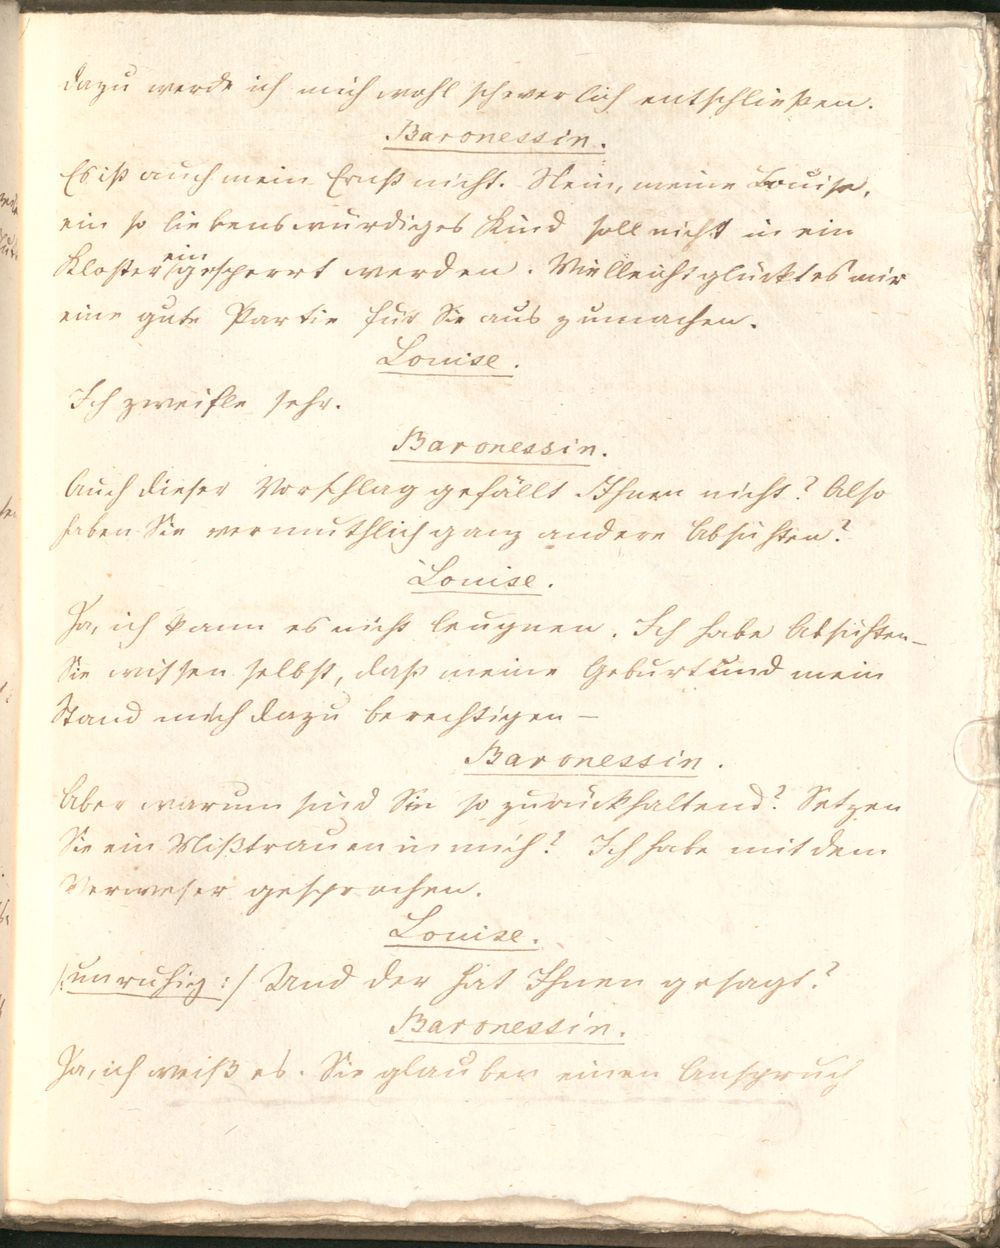 dazu werde ich mich wohl schwerlich entschließen.
Baronessin.
Es ist auch mein Ernst nicht. Nein, meine Louise,
ein so liebenswürdiges Kind soll nicht in ein
Kloster eingesperrt werden. Vielleicht glückt es mir
eine gute Partie für Sie auszumachen.
Louise.
Ich zweifle sehr.
Baronessin.
Auch dieser Vorschlag gefällt Ihnen nicht? Also
haben Sie vermuthlich ganz andere Absichten?
Louise.
Ja, ich kann es nicht leugnen. Ich habe Absichten –
Sie wissen selbst, daß meine Geburt und mein
Stand mich dazu berechtigen –
Baronessin.
Aber warum sind Sie so zurückhaltend? Setzen
Sie ein Mißtrauen in mich? Ich habe mit dem
Verweser gesprochen.
Louise.
/:unruhig:/ Und der hat Ihnen gesagt?
Baronessin.
Ja, ich weiß es. Sie glauben einen Anspruch